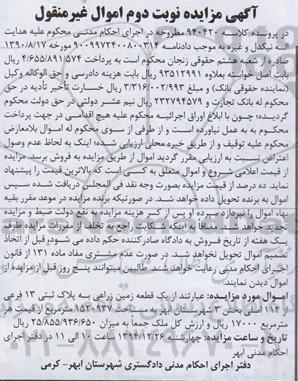 آگهی مزایده نوبت دوم اموال غیرمنقول
در پرونده کلاسه ۹۴۰۴۳۰ مطروحه در اجرای احکام مدنی محکوم علیه هدایت
اله نیکدل و غیره به موجب دادنامه ۹۰۰۹۹۷۲۴۰۰۸۰۰۲۱۴ مورخه ۱۳۹۰/۸/۱۷
صادره از شعبه هشتم حقوقی زنجان محکوم است به پرداخت ۴/۶۵۵/۸۹۱/۵۷۴ ریال
بابت اصل خواسته بعلاوه ۹۳۵۱۲۹۹۱ ریال بابت هزینه دادرسی و حق الوکاله وکیل
(نماینده حقوقی بانک) و ۳/۳۱۶/۰۰۲/۹۹۳ ریال خسارت تأخیر تأدیه در حق
محکوم له بانک تجارت و ۲۳۲۷۹۴۵۷۹ ریال نیم عشر دولتی در حق دولت محکوم
گردیده؛ چون با ابلاغ اوراق اجرائیه محکوم علیه هیچ اقدامی در جهت پرداخت
محکوم به به عمل نیاورده است و از طرفی از سوی محکوم له اموال بلامعارض
محکوم علیه توقیف و از طریق خبره محلی ارزیابی شده؛ اینک به لحاظ عدم وصول
اعتراض نسبت به ارزیابی مقرر گردید اموال از طریق مزایده به فروش برسد مزایده
از قیمت اعلامی شروع و اموال متعلق به کسی است که بالاترین قیمت را پیشنهاد
نماید. ده درصد از قیمت مزایده بصورت وجه نقد فی المجلس دریافت شده سپس
اموال به برنده تحویل داده خواهد شد. در صورتیکه برنده مزایده در موعد مقرر بقیه
بهاء اموال را نپردازد سپرده او پس از کسر هزینه مزایده به نفع دولت ضبط و مزایده
تجدید خواهد شد. مضافاً به اینکه شکایت راجع به تخلف از مقررات مزایده ظرف
یک هفته از تاریخ فروش به دادگاه صادرکننده حکم داده می شود، قبل از اتخاذ
تصمیم اموال تحویل نخواهد شد. در صورت عدم مشتری مفاد ماده ۱۳۱ از قانون
اجرای احکام مدنی رعایت خواهد شد. طالبین میتوانند پنج روز قبل از مزایده از
اموال دیدن نمایند.
اموال مورد مزایده: عبارتند از یک قطعه زمین زراعی به پلاک ثبتی ۱۳ فرعی
از ۱۱۲ اصلی بخش ۳ شهرستان ابهر به مساحت ۱۵۲۰۹۳۷ مترمربع از قیمت هر
مترمربع ۱۷۰۰۰ ریال و ارزش کل ملک جمعاً به میزان ۲۵/۸۵۵/۹۳۶/۶۵۰ ریال
تاریخ و ساعت مزایده: چهارشنبه ۱۳۹۴/۱۲/۲۶ ساعت ۱۰ الی ۱۱ در دفتر اجرای
احکام مدنی ابهر
دفتر اجرای احکام مدنی دادگستری شهرستان ابهر- کرمی